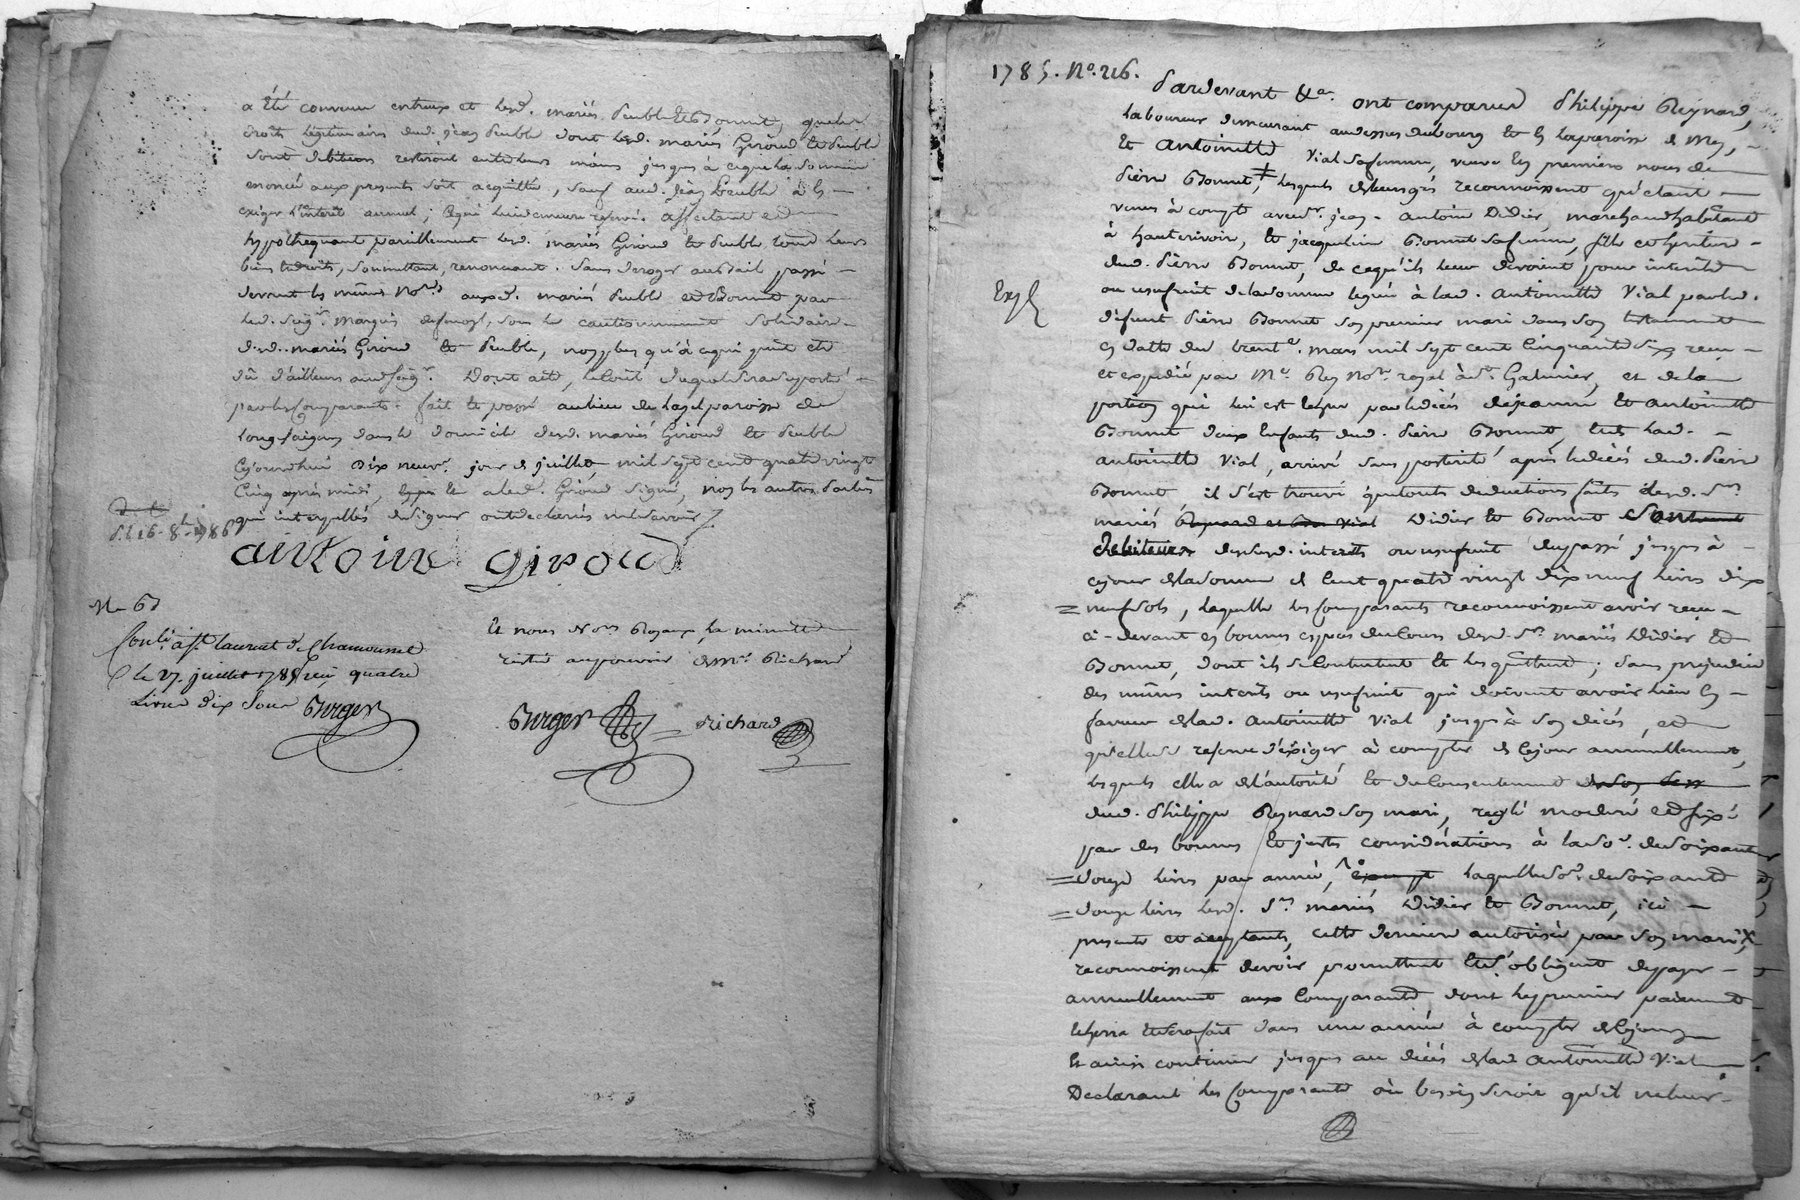 a été convenu entreux et lesd. mariés Peuble et Bonnet, que les
droits légitimaires dud. jean Peuble dont lesd. mariés Giroud et Peuble
sont débiteurs resteront entre leurs mains jusques à ceque la somme
énoncée aux presents soit acquittée, sauf aud. jean Peuble à en
exiger l'interet annuel;
hypothequant pareillement lesd. mariés Giroud et Peuble tous leurs
biens et droits, soumettant, renonceant. Sans deroger au Bail passé
devant les mêmes No.res auxd. mariés Peuble et Bonnet par
led. seig.r Marquis sous le cautionnement solidaire
desd. mariés Giroud et Peuble, non plus qu'à ce qui peut etre
dû d'ailleurs aud. seig.r. Dont acte,
par les Comparants. fait et passé au lieu de paroisse de
Longesaigne dans le domicile desd. mariés Giroud et Peuble
Cejourdhui dix neuv.e jour de juillet, mil sept cent quatre vingt
Cinq après midi, led. Giroud signé, non les autres Parties
qui interpellés de signer ont declarés ne le savoir
d. l. 16. 8.bre 1786
antoine giroud
Con.lé à St. laurent de Chamousset
le 27. juillet 1785 reçu quatre
Livres dix sous Burger
Et nous No.res Royaux, la minutte
restée au pouvoir de M.e Richard
Burger Richard
1785. No. 216.
Pardevant &a. ont comparus Philippe Reynard,
laboureur demeurant audessus du bourg et en la paroisse de Mey,
et antoinette Vial sa femme, veuve en premiere noces de
Pierre Bonnet, lesquels de leurs grés reconnoissent qu'etant
venus à compte avec s.r jean-Antoine Didier, marchand habitant
à hauterivoire, et jacqueline Bonnet sa femme, fille et heritiere
dud. Pierre Bonnet, de ce qu'ils leur devoient pour interets
ou usufruit de la somme leguée à lad. Antoinette Vial par led.
Exp.
défunt Pierre Bonnet son premier mari dans son testament
en datte du trent.e mars mil sept cent cinquante six reçu
et expedié par M.e Rey No.re royal à St. Galmier, et de la
portion qui lui est echue par le décés de jeanne et antoinette
Bonnet deux enfants dud. Pierre Bonnet, et de lad.
antoinette Vial, arrivé sans posterité après le décés dud. Pierre
Bonnet, il s'est trouvé que touts deductions faits lesd. S.rs
mariés Reynard et Vial Didier et Bonnet sont
debiteurs desd. interets ou usufruit du passé jusques à
cejour de la somme de Cent quatre vingt dix neuf livres dix
neuf sols, laquelle les Comparants reconnoissent avoir reçu
ci-devant en bonnes espèces du Cours desd. S.rs mariés Didier et
Bonnet, dont ils se Contentent et les quittent; sans prejudice
des mêmes interets ou usufruit qui doivent avoir lieu en
faveur de lad. Antoinette Vial jusques à son décés, et
qu'elle se reserve d'exiger à compter de cejour annuellement,
lesquels elle a de l'autorité et du Consentement de son
dud. Philippe Reynard son mari, reglé moderé et fixé
par des bonnes et justes considérations à la So.e de soixante
douze livres par année, laquelle So.e de soixante
douze livres lesd. S.rs mariés Didier et Bonnet, ici
presents et acceptants, cette derniere autorisée par son mari,
reconnoissent devoir promettent et s'obligent de payer
annuellement aux Comparants dont le premier paiement
echerra et sera fait dans une année à compter de cejour
et ainsi continuer jusques au décés de lad. Antoinette Vial
Declarant les Comparants où besoin seroit qu'il ne leur